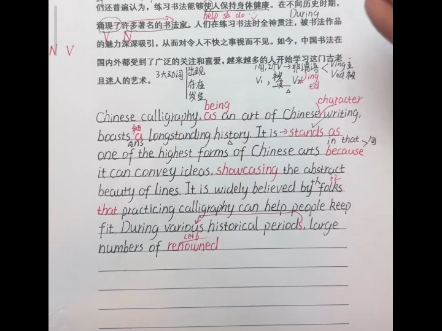 们还普遍认为，练习书法能够使人保持身体健康。在不同历史时期，
help sb do
During
涌现了许多著名的书法家。人们在练习书法时全神贯注，被书法作品
N V
V N
的魅力深深吸引，从而对令人不快之事视而不见。如今，中国书法在
国内外都受到了广泛的关注和喜爱，越来越多的人开始学习这门古老
且迷人的艺术。
3大动词
出现
存在
发生
being
character
Chinese calligraphy, as an art of Chinese writing,
boasts a longstanding history. It is → stands as
in that
one of the highest forms of Chinese arts because
it can convey ideas, showcasing the abstract
beauty of lines. It is widely believed by folks
that practicing calligraphy can help people keep
fit. During various historical periods, large
numbers of renowned